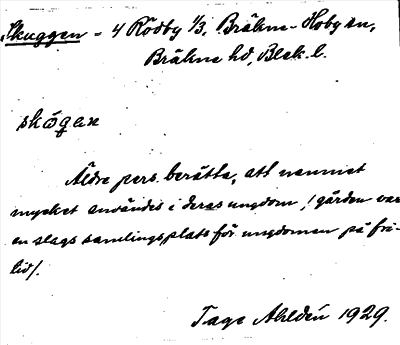 Skuggen - 4 Rödby 1/3, Bräkne-Hoby sn,
Bräkne hd, Blek. l.
skógan
Äldre pers. berätta, att namnet
mycket användes i deras ungdom, / gården var
en slags samlingsplats för ungdomen på fri-
tid/.
Tage Ahldén 1929.